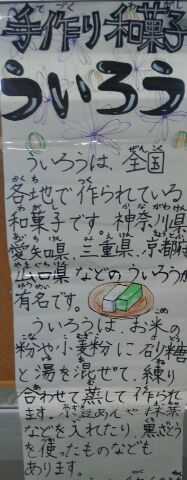 手作り和菓子
ういろう
ういろうは、全国
各地で作られている
和菓子です。神奈川県、
愛知県、三重県、京都府、
山口県などのういろうが
有名です。
ういろうは、お米の
粉や小麦粉に砂糖
と湯を混ぜて、練り
合わせて蒸して作られ
ます。小豆あんや抹茶
などを入れたり、黒ざとう
を使ったものなども
あります。